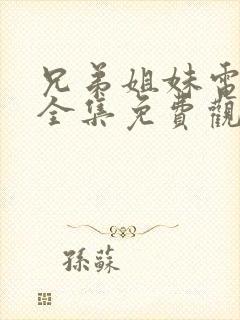 兄弟姐妹電
全集免費觀
孫蘇